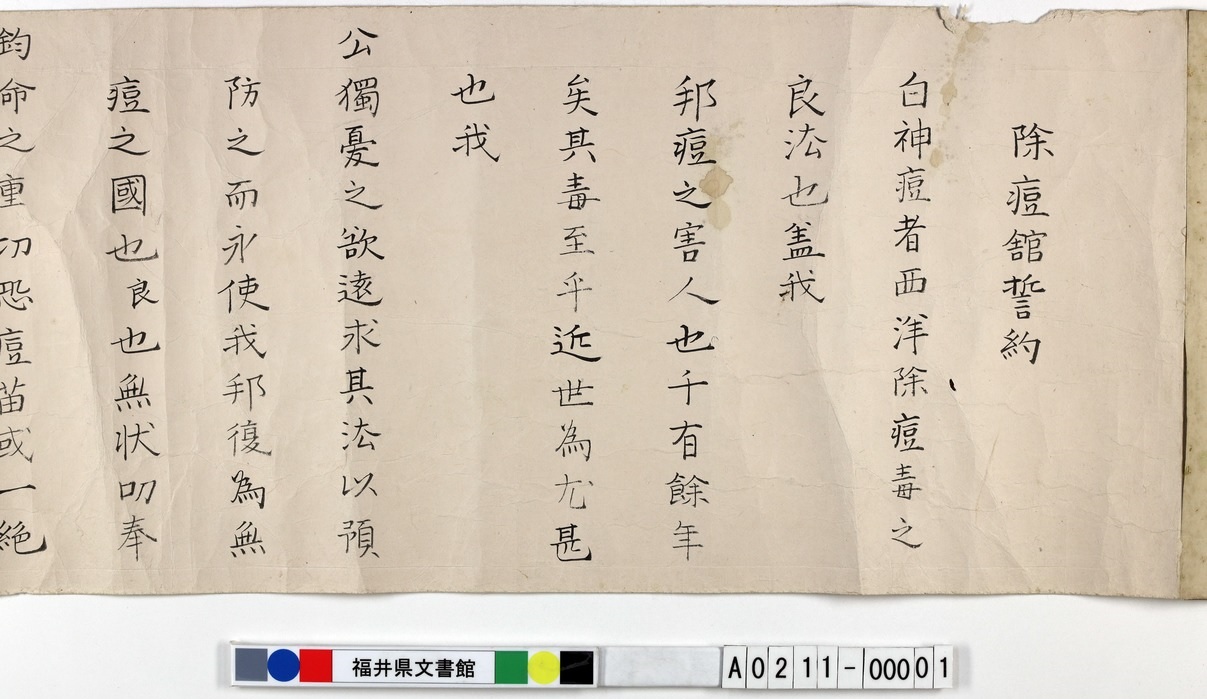 除痘館誓約
白神痘者西洋除痘毒之
良法也盖我
邦痘之害人也千有餘年
矣其毒至乎近世為尤甚
也我
公獨憂之欲遠求其法以預
防之而永使我邦復為無
痘之國也良也無状叨奉
鈞命之重切恐痘苗或一絶
福井県文書館
A0211-00001